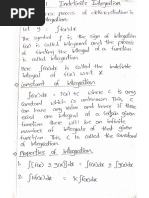 1 Indefinite Integration
Integration
process of differentiation is
integration
Let y = ∫f(x)dx
The symbol ∫ is the sign of integration
f(x) is called integrand and the process
of finding the integral of a function
is called integration.
Here ∫f(x)dx is called the indefinite
integral of f(x) w.r.t x
Constant of integration
∫f(x)dx where c is any
constant which is unknown. This c
can have any value and hence if there
exist one integral of a given
function there will be an infinite
number of integrals to that given
function. This c is called the constant
of integration.
Properties of integration
1. ∫[f(x) ± g(x)]dx = ∫f(x)dx ± ∫g(x)dx
2. ∫kf(x)dx = k∫f(x)dx